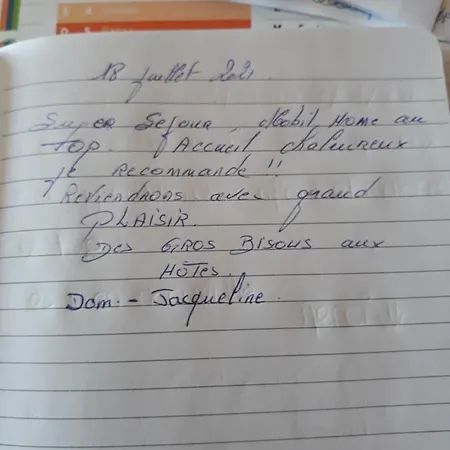 18 juillet 2021.
Super Sejour, Mobil Home au
Top. Accueil chaleureux
Je recommande !!
Reviendrons avec grand
PLAISIR.
Des GROS BISOUS aux
HÔTES.
Dom. - Jacqueline.